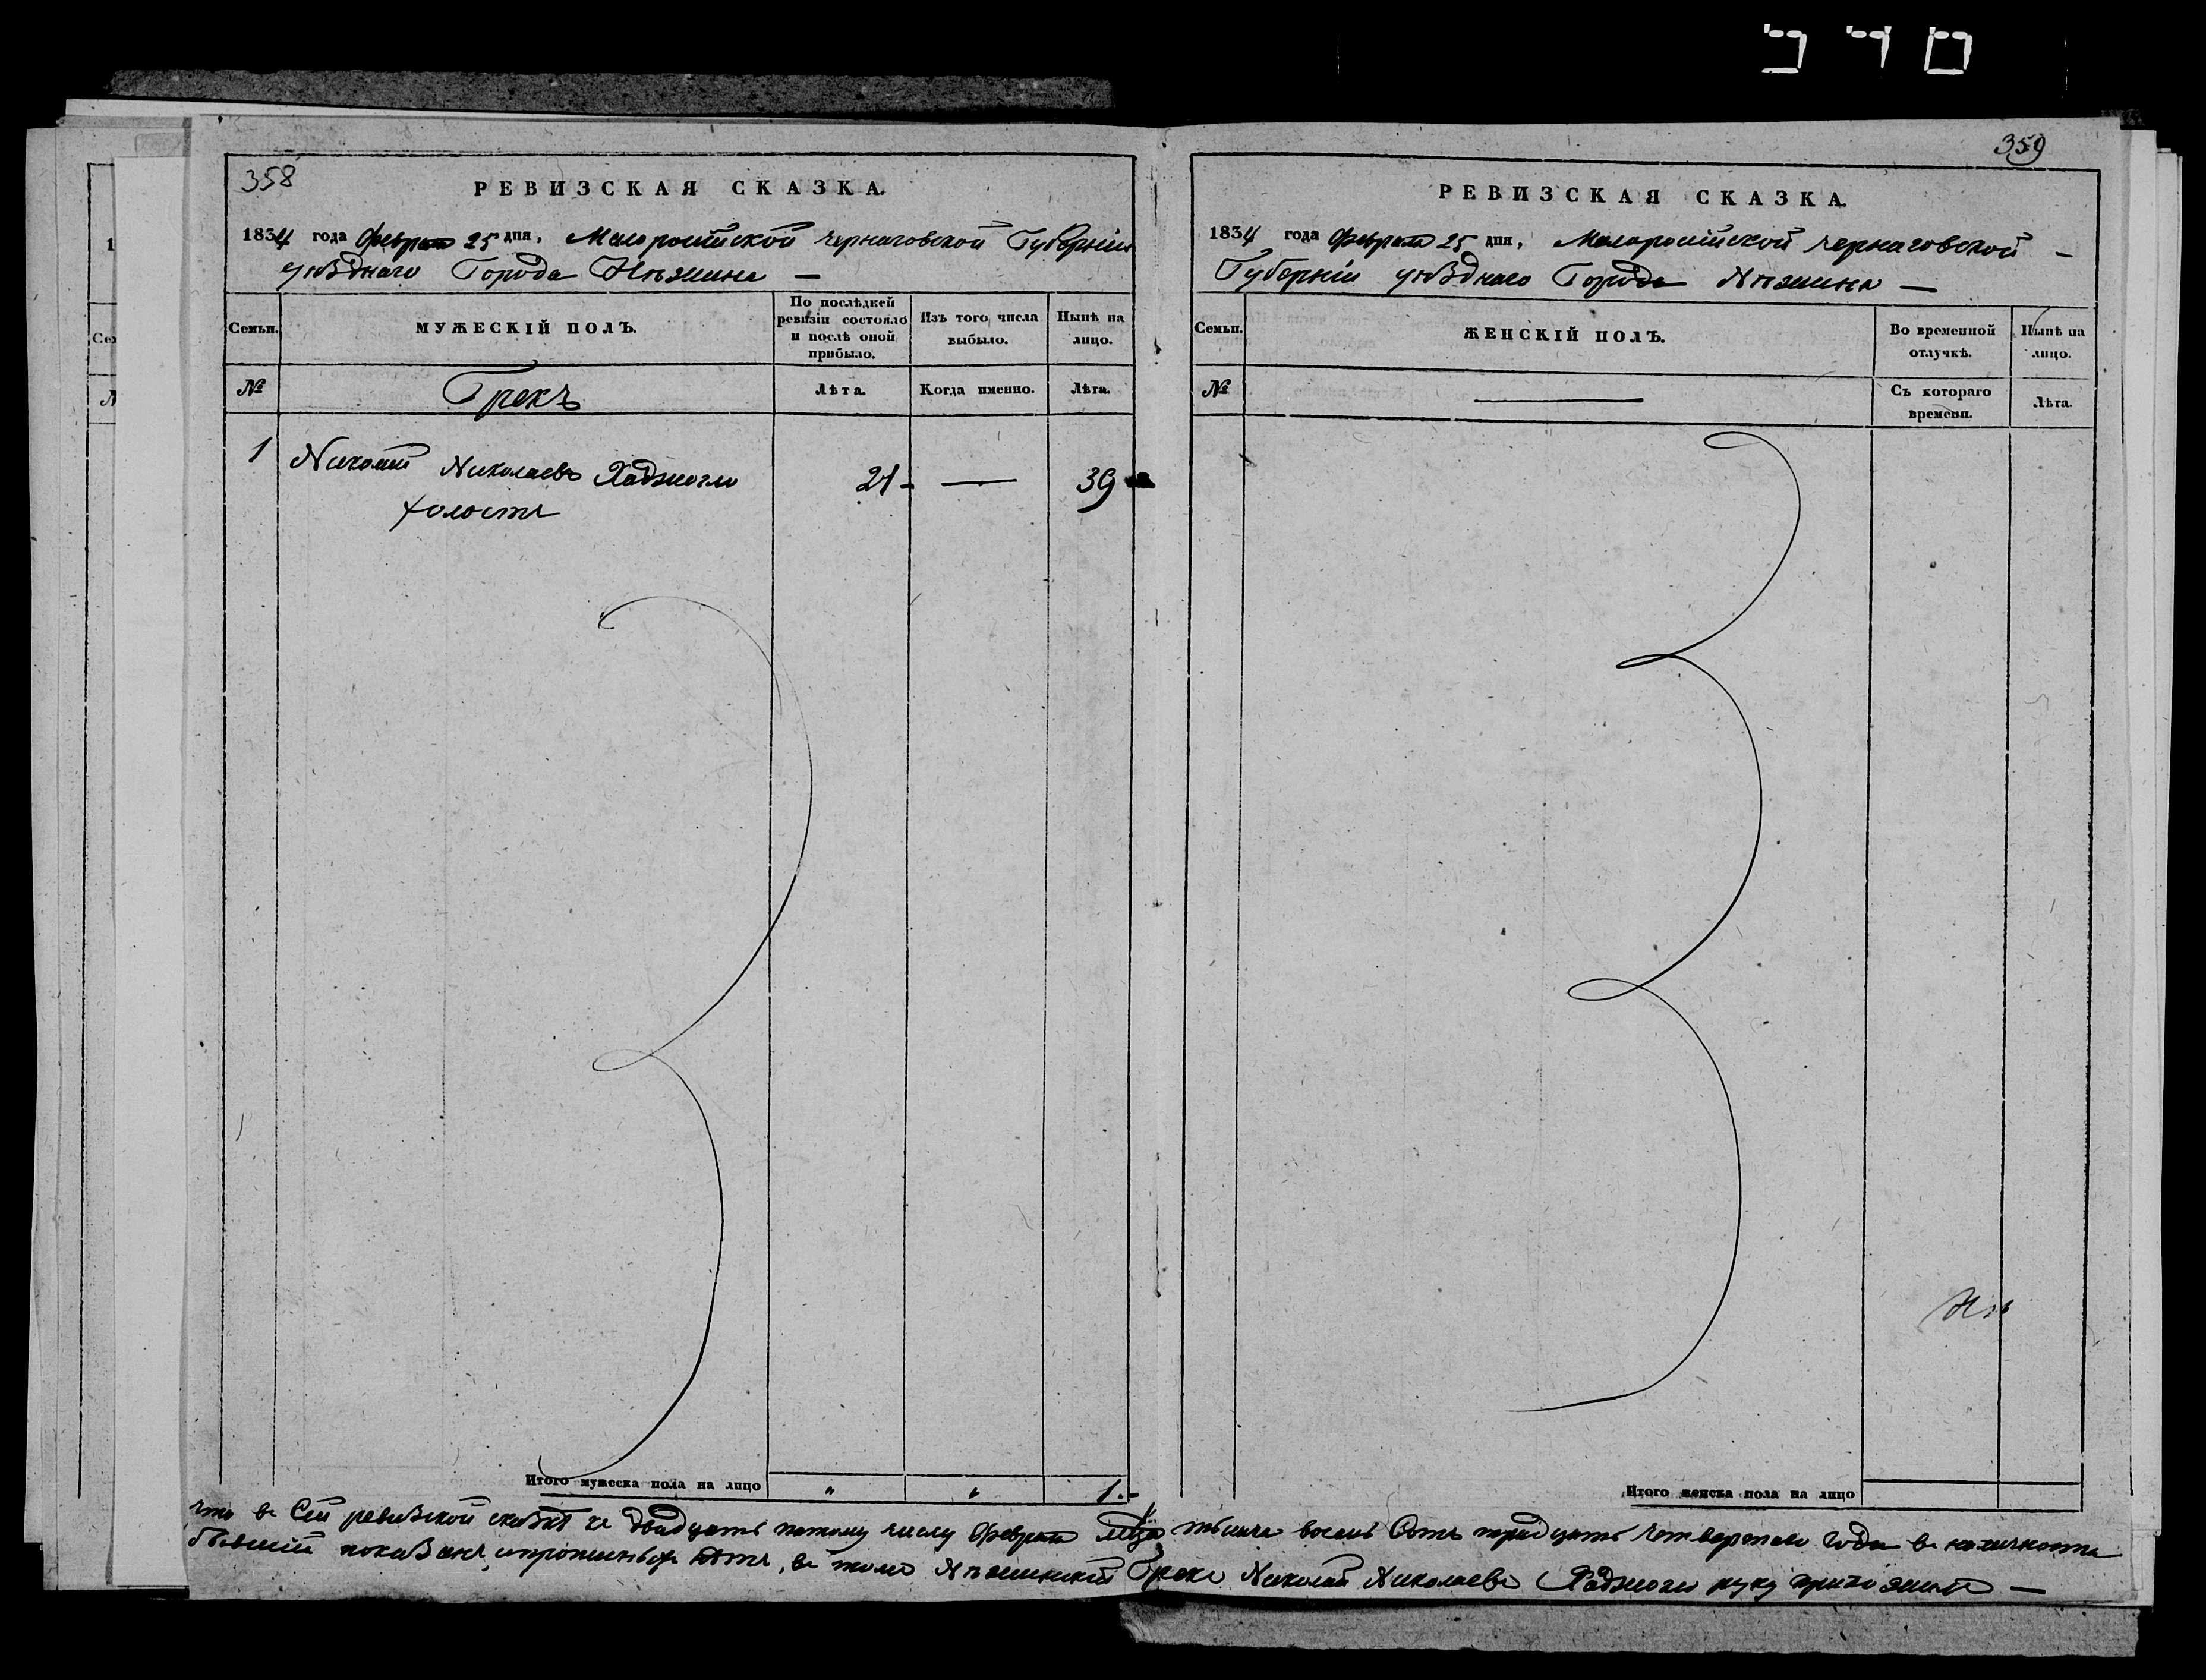 358
РЕВИЗСКАЯ СКАЗКА.
1834 года Февраля 25 дня, Малоросийской Черниговской Губерніи
уѣзднаго Города Нѣжина —
Семьи.
МУЖЕСКІЙ ПОЛЪ.
По послѣдней ревизіи состояло и послѣ оной прибыло.
Изъ того числа выбыло.
Нынѣ на лицо.
№
Грекъ
Лѣта.
Когда именно.
Лѣта.
1 Николай Николаевъ Хаджогло 21 — 39
холостъ
Итого мужеска пола на лицо " " 1.-
359
РЕВИЗСКАЯ СКАЗКА.
1834 года Февраля 25 дня, Малоросийской Черниговской —
Губерніи уѣзднаго Города Нѣжина —
Семьи.
ЖЕНСКІЙ ПОЛЪ.
Во временной отлучкѣ.
Нынѣ на лицо.
№
Съ котораго времени.
Лѣта.
Итого женска пола на лицо
что въ Сей ревизской сказкѣ къ двадцать пятому числу Февраля тысяча восемь Сотъ тридцать четвертаго года въ наличности
бывшій показанъ, и прописныхъ нѣтъ, въ томъ Нѣжинскій Грекъ Николай Николаевъ Хаджогло руку приложилъ —